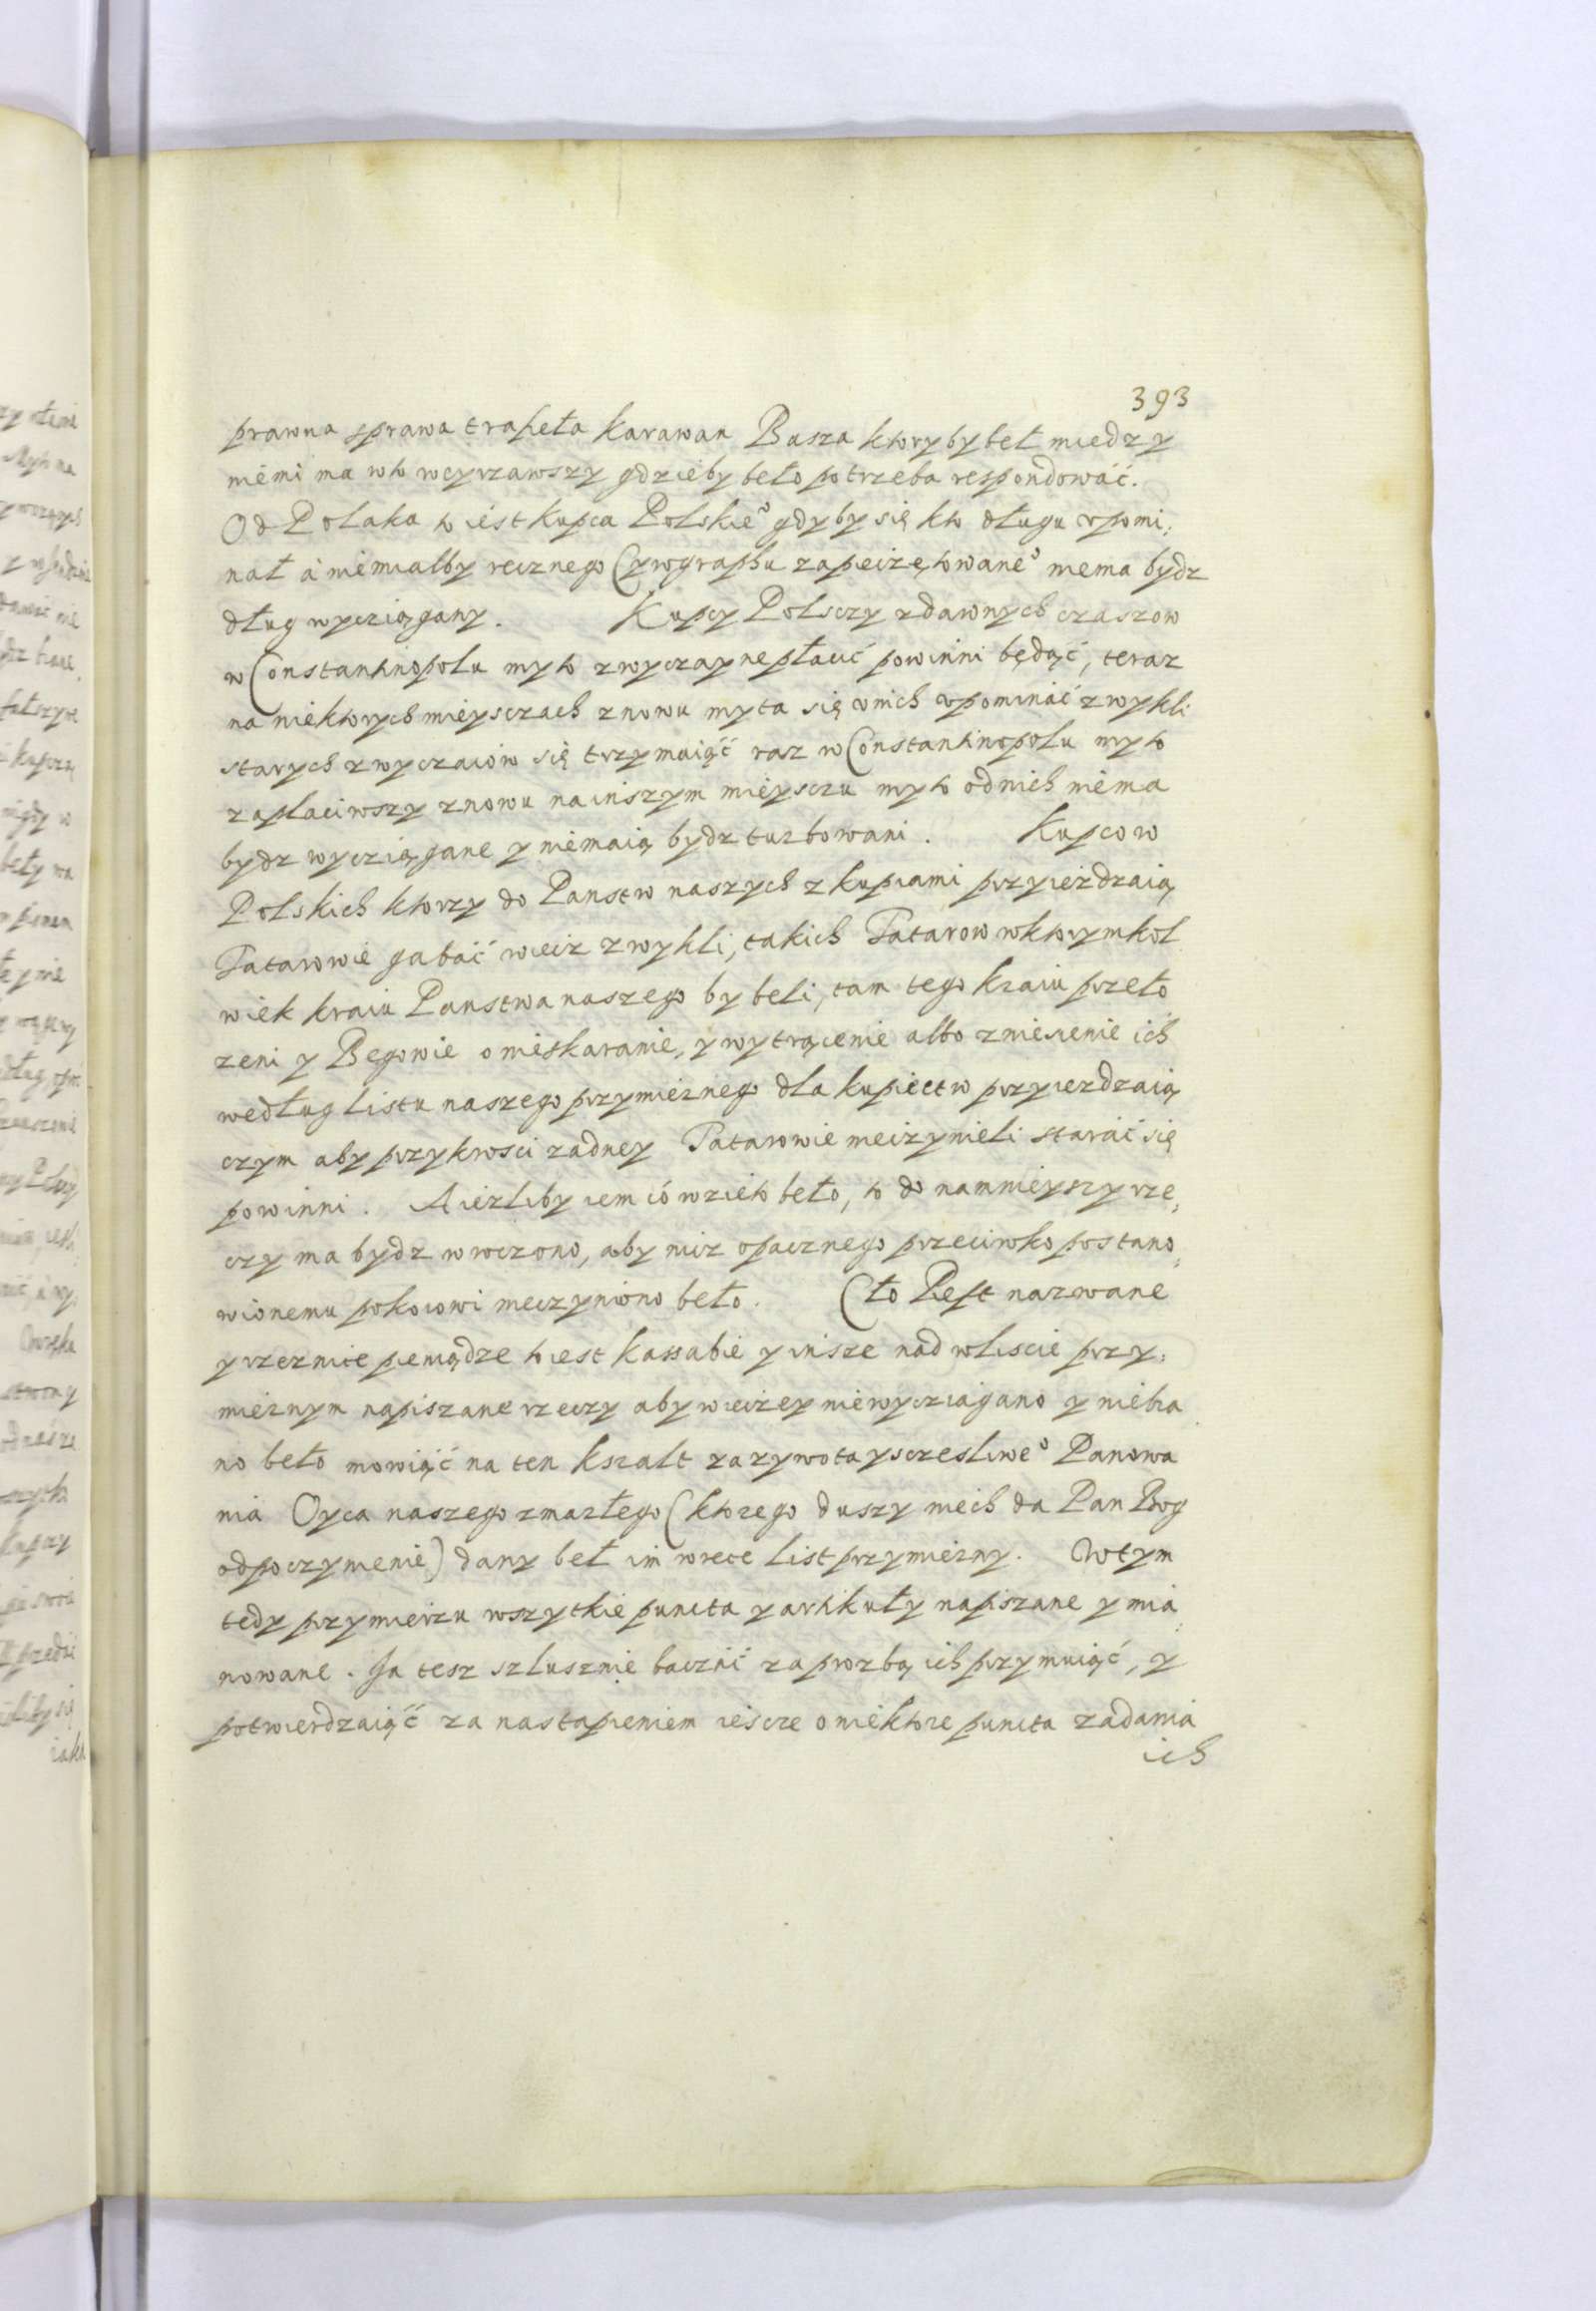 393
prawna sprawa trafieła karawan Basza ktoryby beł miedzy
niemi ma w to weyrzawszy gdzieby beło potrzeba respondowáć.
Od Polaka to iest kupca Polskieº gdyby się kto długu vpomi,
nał á niemiałby recznego Cyrographu zapeiczętowaneº niema bydz
dług wycziągany. Kupcy Polsczy zdawnych czaszow
w Constantinopolu myto zwyczayne płacić powinni będąć, teraz
na niektorych mieysczach znowu myta się v nich vpomináć zwykli
starych zwyczaiów się trzymaiąć raz w Constantinopolu myto
zaplaciwszy znowu na inszym mieysczu myto od nich niema
bydz wycziągane y niemaią bydz turbowani. Kupcow
Polskich ktorzy do Panstw naszych z kupiami przyieżdzaią
Tatarowie gabáć wiecz zwykli, takich Tatarow w ktorymkol
wiek kraiu Panstwa naszego by beli, tam tego kraiu przeło
zeni y Begowie o mieskanie, y wytrącenie albo zniesienie ich
według listu naszego przymiernego dla kupiectw przyiezdzaią
czym aby przykrosci zadney Tatarowie nieczynieli staráć się
powinni. A iezliby iem có wzieto beło, to do namnieyszy rze,
czy ma bydz wroczono, aby nicz opacznego przeciwko postano,
wionemu pokoiowi nieczyniono beło. Cło Reft nazwane
y rzeznicze pieniądze to iest kassabie y insze nad w liscie przy,
miernym napiszane rzeczy aby wieczey niewycziągano y niebra
no beło mowiąć na ten kszalt za zywota y sczesliweº Panowa
nia Oyca naszego zmarłego (ktorego duszy niech da Pan Bog
odpoczynienie) dany beł im w rece list przymierny. W tym
tedy przymierzu wszytkie puncta y artikuły napiszane y mia,
nowane. Ja tesz szlusznie baczáć za prozbą ich przymuiąć, y
potwierdzaiąć za nastapieniem iescze o niektore puncta zadania
ich